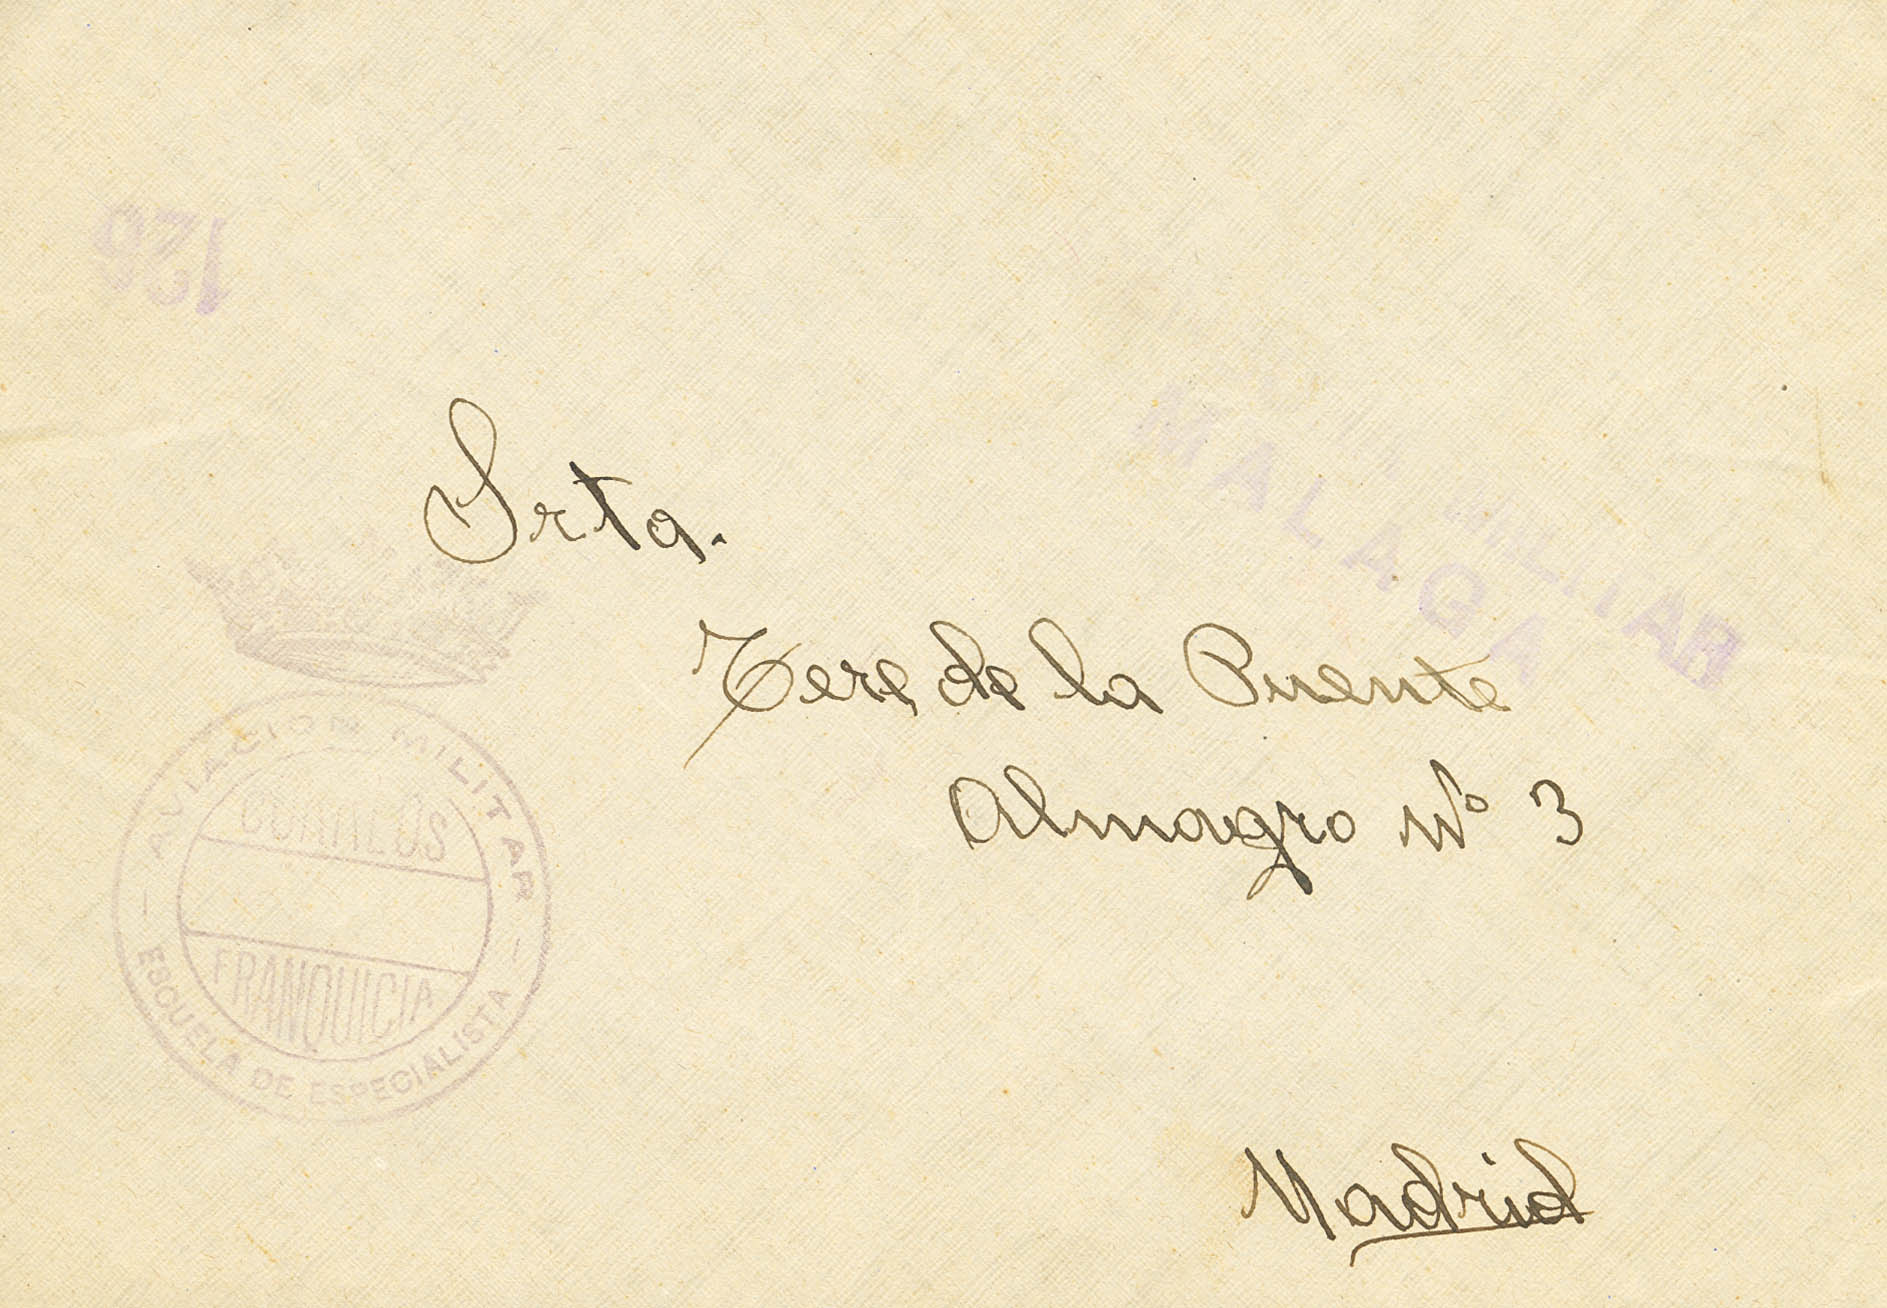 126
MILITAR
MALAGA
Srta.
Tere de la Puente
Almagro nº 3
Madrid
AVIACION MILITAR
CORREOS
FRANQUICIA
ESCUELA DE ESPECIALISTA